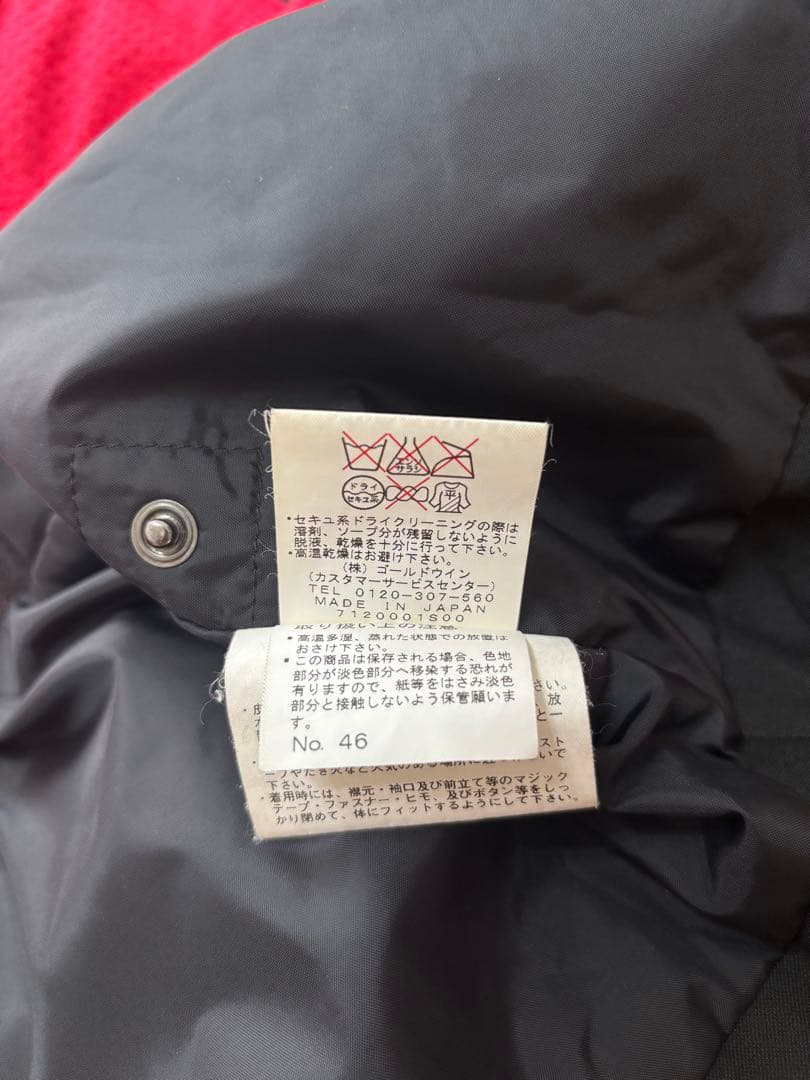 エンソ
サラシ
ドライ
セキユ系
平
・セキユ系ドライクリーニングの際は
溶剤、ソープ分が残留しないように
脱液、乾燥を十分に行って下さい。
・高温乾燥はお避け下さい。
(株)ゴールドウイン
(カスタマーサービスセンター)
TEL 0120-307-560
MADE IN JAPAN
7120001S00
取り扱い上の注意
・高温多湿、蒸れた状態での放置は
おさけ下さい。
・この商品は保存される場合、色地
部分が淡色部分へ移染する恐れが
有りますので、紙等をはさみ淡色
部分と接触しないよう保管願いま
す。
No. 46
さい。
放
と一
スト
いで
下さい。
・着用時には、襟元・袖口及び前立て等のマジック
テープ・ファスナー・ヒモ、及びボタン等をしっ
かり閉めて、体にフィットするようにして下さい。